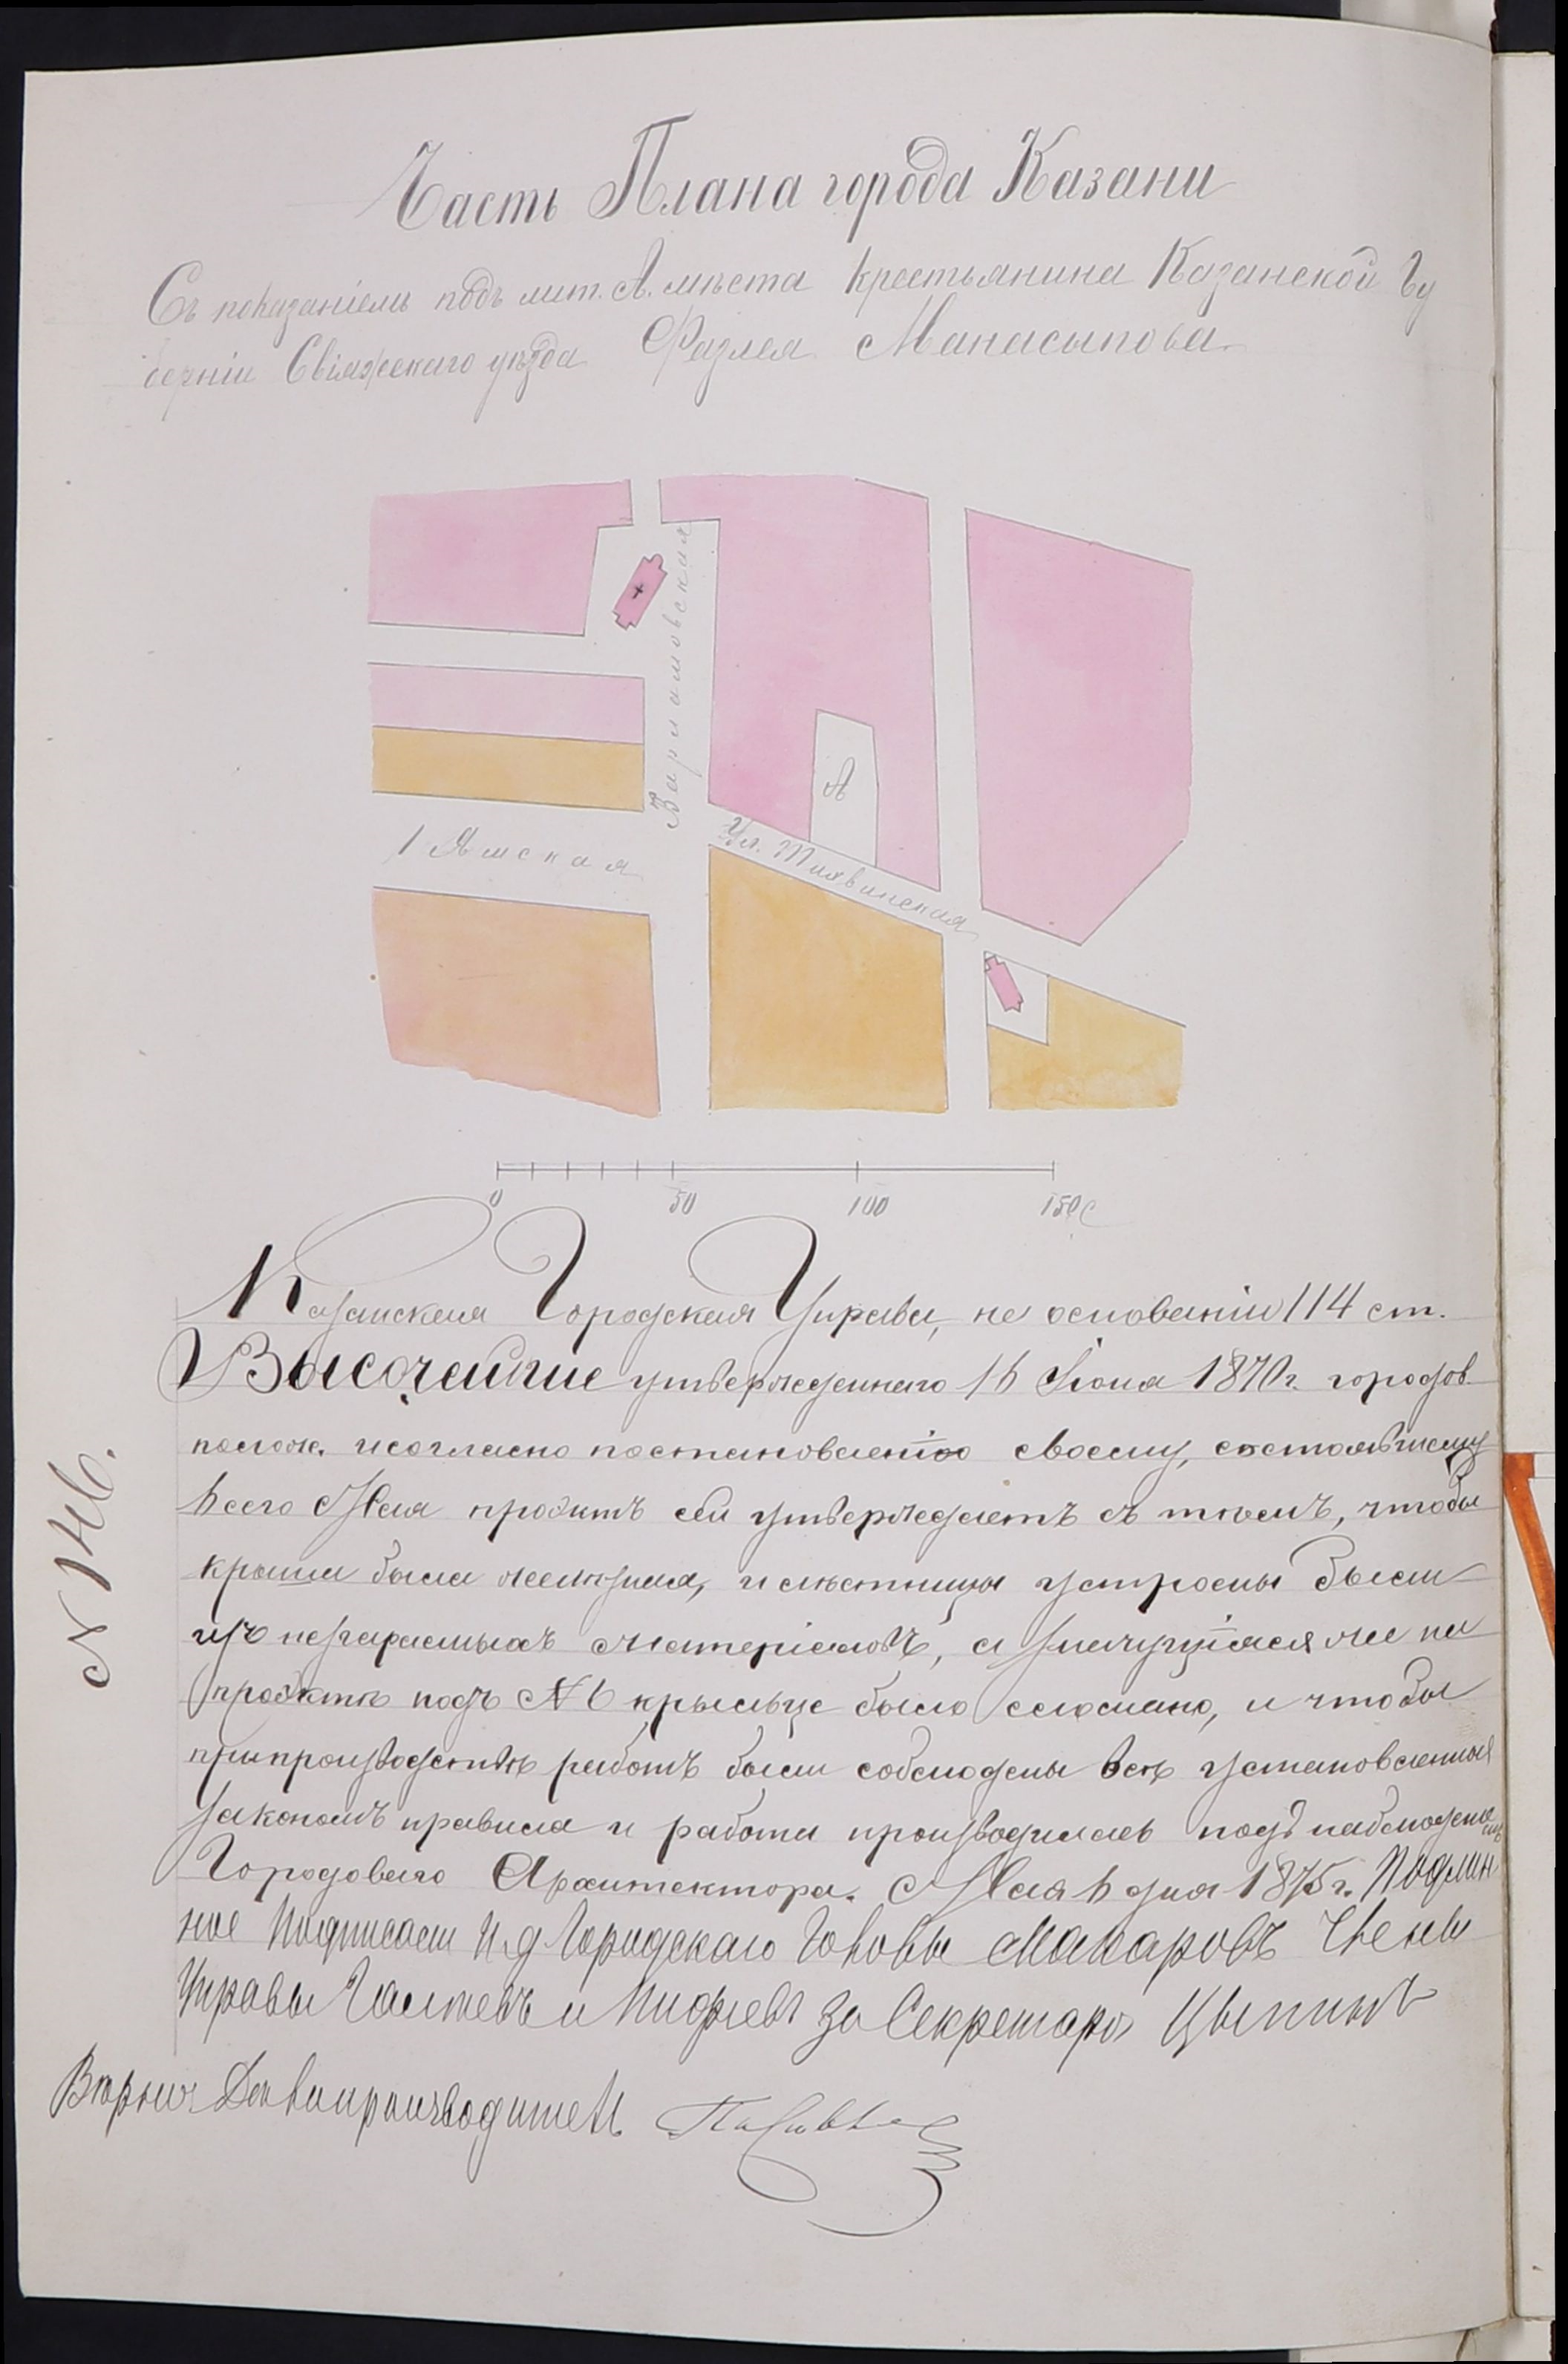 Часть Плана города Казани
Съ показаніемъ подъ лит. А. мѣста крестьянина Казанской Гу
берніи Свіяжскаго уѣзда Фазлея Манасыпова.
Варламовская
А
1 Ямская
Ул. Тихвинская
0 50 100 150 С
N 146.
Казанская Городская Управа, на основаніи 114 ст.
Высочайше утвержденнаго 16 Іюня 1870 г. городов.
полож. и согласно постановленію своему, состоявшемуся
6 сего Мая проэктъ сей утверждаетъ съ тѣмъ, чтобы
крыши были желѣзныя, и лѣстницы устроены были
изъ несгараемыхъ матеріаловъ, а значущіяся же на
проэктѣ подъ № 6 крыльце было сломано, и чтобы
при производствѣ работъ были соблюдены всѣ установленныя
закономъ правила и работы производились подъ наблюденіемъ
Городоваго Архитектора. Мая 6 дня 1875 г. Подлин
ное подписали И. д. Городскаго Головы Макаровъ Члены
Управы и за Секретаря
Вѣрно: Дѣлопроизводитель